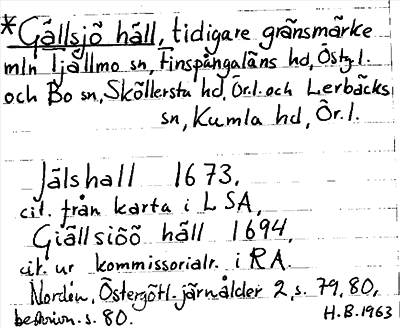 *Gällsjö häll, tidigare gränsmärke
mln Tjällmo sn, Finspångaläns hd, Östg.l.
och Bo sn, Sköllersta hd, Ör.l. och Lerbäcks
sn, Kumla hd, Ör.l.
Jälshall 1673,
cit. från karta i LSA,
Giällsiöö häll 1694,
cit. ur kommissorialr. i RA.
Nordén, Östergötl. järnålder 2, s. 79, 80,
beskrivn. s. 80.
H.B. 1963